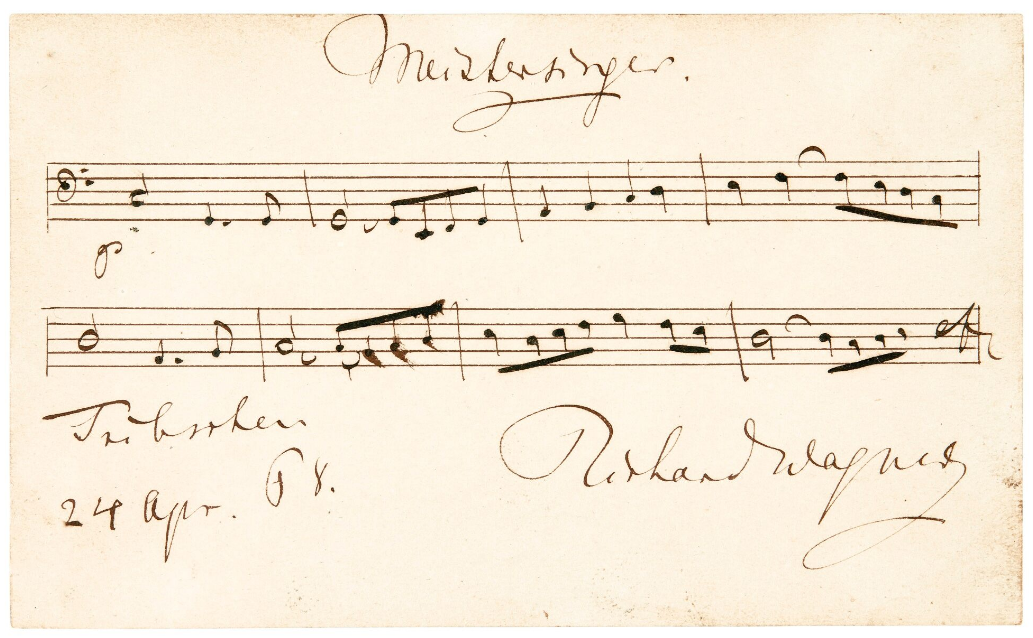 Meistersinger.
p
etc
Tribschen
24 Apr. 68.
Richard Wagner